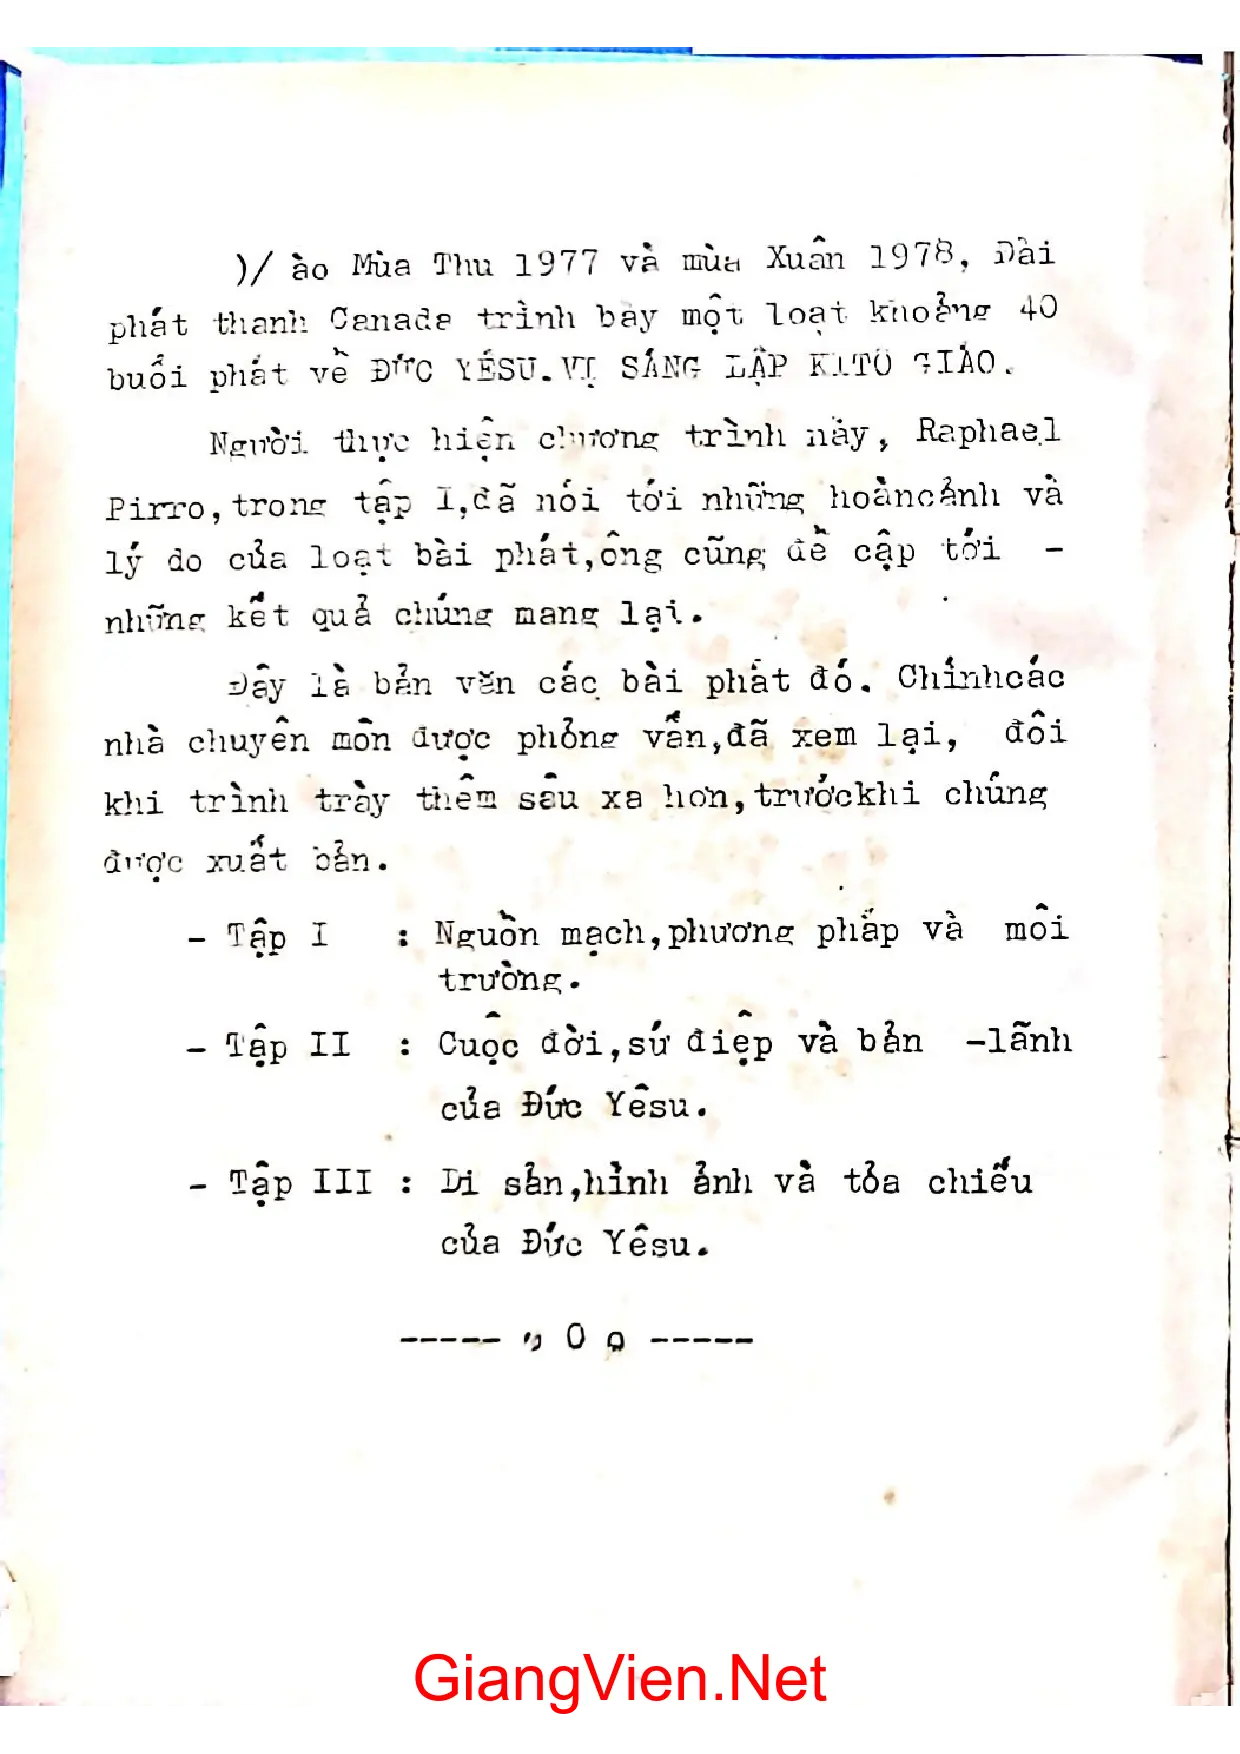 Vào Mùa Thu 1977 và mùa Xuân 1978, Đài
phát thanh Canada trình bày một loạt khoảng 40
buổi phát về ĐỨC YÊSU.VỊ SÁNG LẬP KITÔ GIÁO.
Người thực hiện chương trình này, Raphael
Pirro,trong tập I,đã nói tới những hoàncảnh và
lý do của loạt bài phát,ông cũng đề cập tới -
những kết quả chúng mang lại.
Đây là bản văn các bài phát đó. Chínhcác
nhà chuyên môn được phỏng vấn,đã xem lại, đôi
khi trình trày thêm sâu xa hơn,trướckhi chúng
được xuất bản.
- Tập I : Nguồn mạch,phương pháp và môi
trường.
- Tập II : Cuộc đời,sứ điệp và bản -lãnh
của Đức Yêsu.
- Tập III : Di sản,hình ảnh và tỏa chiếu
của Đức Yêsu.
----- o 0 o -----
GiangVien.Net